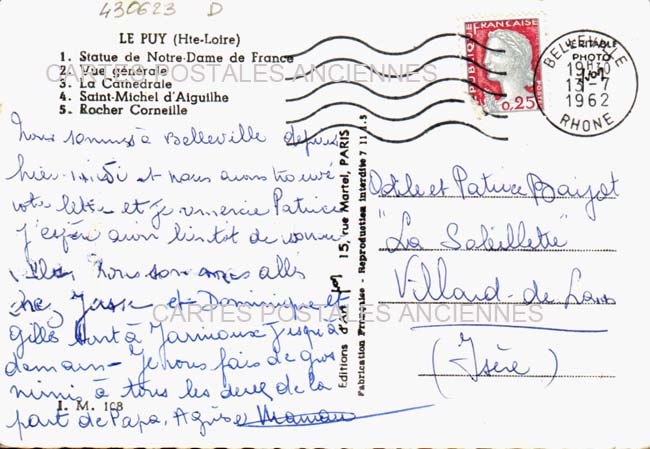 430623 D
LE PUY (Hte-Loire)
1. Statue de Notre-Dame de France
2. Vue générale
3. La Cathédrale
4. Saint-Michel d'Aiguilhe
5. Rocher Corneille
CARTES POSTALES ANCIENNES
Nous sommes à Belleville depuis
hier et nous avons trouvé
votre lettre et je remercie Patrice
j'espère avoir bientôt de
Nous sommes allés
chez et Dominique et
gilles sont à Jarnioux jusqu'à
demain - Je vous fais de gros
mimi à tous les deux de la
part de Papa, Agnès et Maman
I. M. 108
Editions d'art 15, rue Martel, PARIS
Fabrication Française - Reproduction interdite
VÉRITABLE
PHOTO
REPUBLIQUE FRANÇAISE
0,25
POSTES
BELLEVILLE
13-7
1962
RHONE
Odile et Patrice
"La Sabillette"
Villard-de-Lans
(Isère)
CARTES POSTALES ANCIENNES